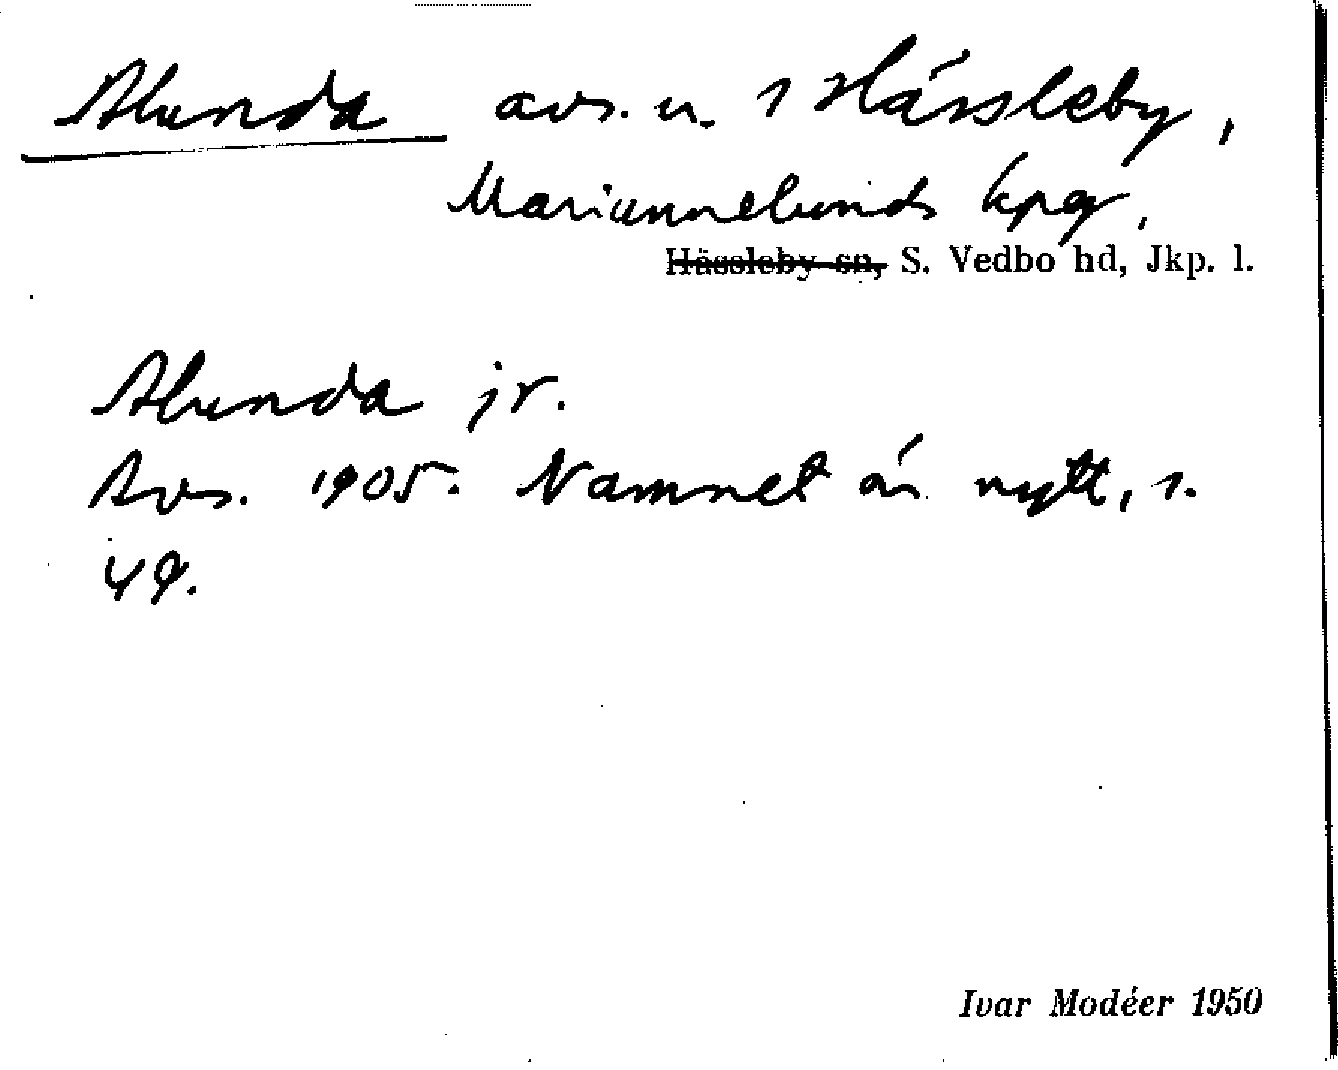 Alunda avs. u. 1 Hässleby,
Mariannelunds kpg,
Hässleby sn, S. Vedbo hd, Jkp. l.
Alunda jr.
Avs. 1905. Namnet är nytt, s.
49.
Ivar Modéer 1950